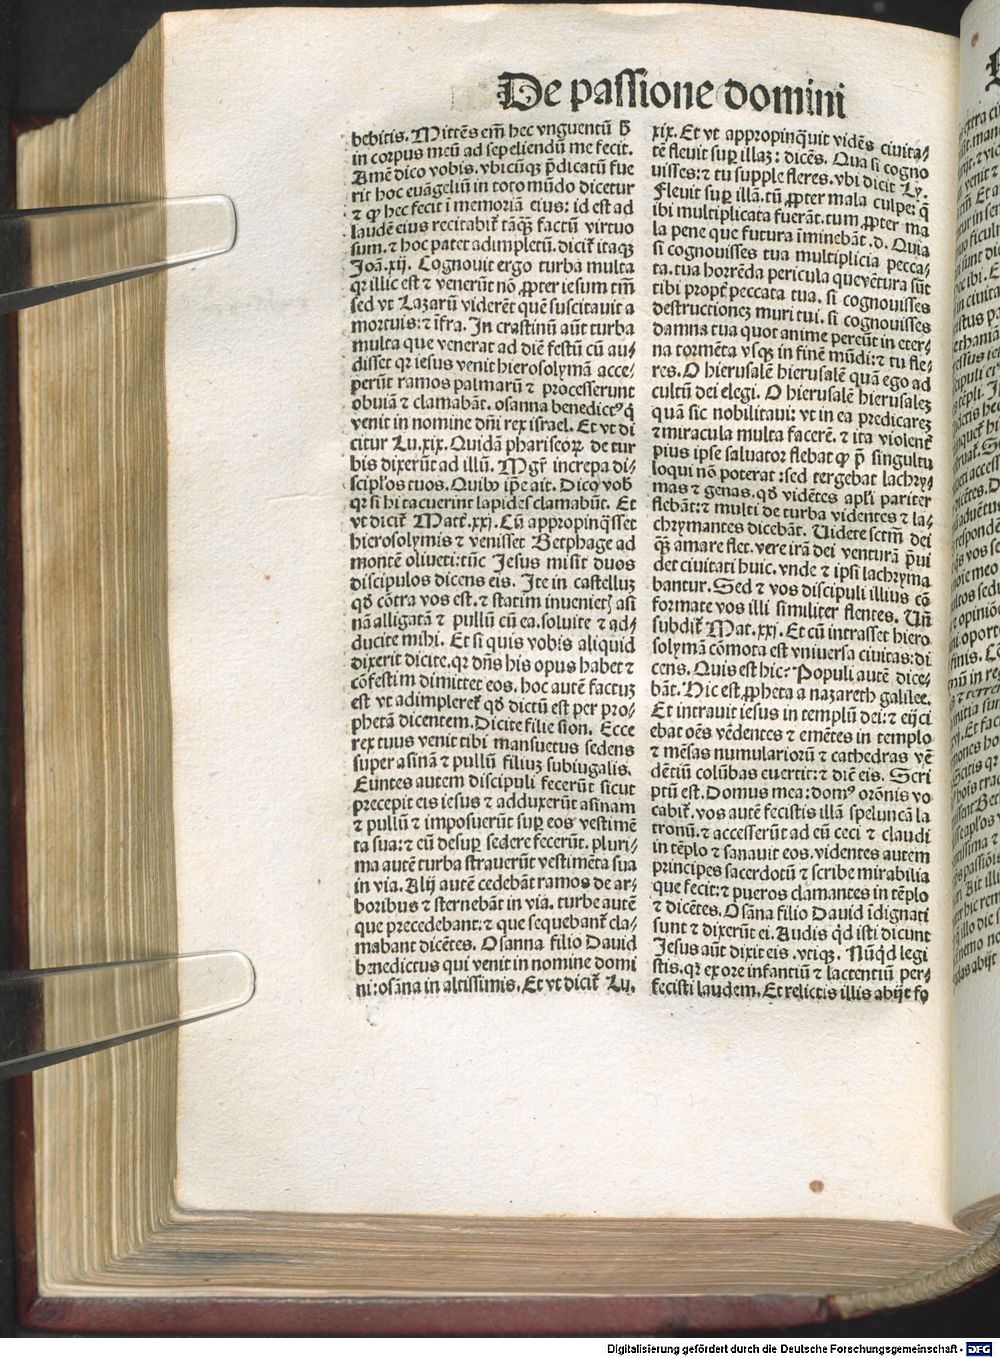 De passione domini
bebitis. Mittēs em̄ hec vnguentū ħ
in corpus meū ad sepeliendū me fecit.
Amē dico vobis. vbicūqꝫ p̄dicatū fue
rit hoc euāgeliū in toto mūdo dicetur
⁊ ꝙ hec fecit i memoriā eius: id est ad
laudē eius recitabit̃ tāqꝫ̃ factū virtuo
sum. ⁊ hoc patet adimpletū. dicit̃ itaqꝫ
Joā.xij. Cognouit ergo turba multa
qꝛ illic est ⁊ venerūt nō ꝓpter iesum tm̄
sed vt Lazarū viderēt quē suscitauit a
mortuis: ⁊ īfra. In crastinū aūt turba
multa que venerat ad diē festū cū au/
disset qꝛ iesus venit hierosolymā acce/
perūt ramos palmarū ⁊ processerunt
obuiā ⁊ clamabāt. osanna benedictꝰ q̇
venit in nomine dn̄i rex israel. Et vt di
citur Lu.xix. Quidā phariseoꝝ de tur
bis dixerūt ad illū. Mgr̃ increpa di/
scipl'os tuos. Quibꝰ ip̄e ait. Dico vob̄
qꝛ si hi tacuerint lapides clamabūt. Et
vt dicit̃ Matt̃.xxj. Cū appropinq̄sset
hierosolymis ⁊ venisset Betphage ad
montē oliueti: tūc Jesus misit duos
discipulos dicens eis. Ite in castelluꝫ
qd̄ cōtra vos est. ⁊ statim inuenietꝭ asi
nā alligatā ⁊ pullū cū ea. soluite ⁊ ad/
ducite mihi. Et si quis vobis aliquid
dixerit dicite. qꝛ dn̄s his opus habet ⁊
cōfestim dimittet eos. hoc autē factuꝫ
est vt adimpleret̃ qd̄ dictū est per pro/
phetā dicentem. Dicite filie sion. Ecce
rex tuus venit tibi mansuetus sedens
super asinā ⁊ pullū filiuꝫ subiugalis.
Euntes autem discipuli fecerūt sicut
precepit eis iesus ⁊ adduxerūt asinam
⁊ pullū ⁊ imposuerūt suꝑ eos vestimē
ta sua: ⁊ eū desuꝑ sedere fecerūt. pluri/
ma autē turba strauerūt vestimēta sua
in via. Alij autē cedebāt ramos de ar/
boribus ⁊ sternebāt in via. turbe autē
que precedebant: ⁊ que sequebant̃ cla/
mabant dicētes. Osanna filio Dauid
benedictus qui venit in nomine domi
ni: osāna in altissimis. Et vt dicit̃ Lu.
xix. Et vt appropinq̇uit vidēs ciuita/
tē fleuit suꝑ illaꝫ: dicēs. Qua si cogno
uisses: ⁊ tu supple fleres. vbi dicit Ly.
Fleuit suꝑ illā. tū ꝓpter mala culpe: q̄
ibi multiplicata fuerāt. tum ꝓpter ma
la pene que futura īminebāt. d. Quia
si cognouisses tua multiplicia pecca/
ta. tua horrēda pericula q̄ ventura sūt
tibi propt̃ peccata tua. si cognouisses
destructioneꝫ muri tui. si cognouisses
damna tua quot anime pereūt in eter/
na tormēta vsqꝫ in finē mūdi: ⁊ tu fle/
res. O hierusalē hierusalē quā ego ad
cultū dei elegi. O hierusalē hierusaleꝫ
quā sic nobilitaui: vt in ea predicareꝫ
⁊ miracula multa facerē. ⁊ ita violent̃
pius ipse saluator flebat ꝙ p̄ singultu
loqui nō poterat: sed tergebat lachry/
mas ⁊ genas. qd̄ vidētes apl'i pariter
flebāt: ⁊ multi de turba videntes ⁊ la/
chrymantes dicebāt. Videte sctm̄ dei
qꝫ̃ amare flet. vere irā dei venturā p̄ui
det ciuitati huic. vnde ⁊ ipsi lachryma
bantur. Sed ⁊ vos discipuli illius cō
formate vos illi similiter flentes. Vn̄
subdit̃ Mat.xxj. Et cū intrasset hiero
solymā cōmota est vniuersa ciuitas: di
cens. Quis est hic: Populi autē dice/
bāt. Hic est ꝓpheta a nazareth galilee.
Et intrauit iesus in templū dei: ⁊ eijci
ebat oēs vēdentes ⁊ emētes in templo
⁊ mēsas numulariorū ⁊ cathedras vē
dētiū colūbas euertit: ⁊ diē eis. Scri
ptū est. Domus mea: domꝰ orōnis vo
cabit̃. vos autē fecistis illā speluncā la
tronū. ⁊ accesserūt ad eū ceci ⁊ claudi
in tēplo ⁊ sanauit eos. videntes autem
principes sacerdotū ⁊ scribe mirabilia
que fecit: ⁊ pueros clamantes in tēplo
⁊ dicētes. Osāna filio Dauid īdignati
sunt ⁊ dixerūt ei. Audis qd̄ isti dicunt
Jesus aūt dixit eis. vtiqꝫ. Nūqd̄ legi
stis. qꝛ ex ore infantiū ⁊ lactentiū per/
fecisti laudem. Et relictis illis abijt fo
Digitalisierung gefördert durch die Deutsche Forschungsgemeinschaft - DFG